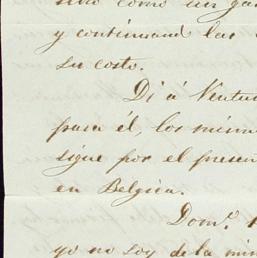 sino como un ga
y continuand las
su costo.
Di á Ventu
para él, los mismo
sigue por el prese
en Belgica.
Dom.º
yo no soy de la mi